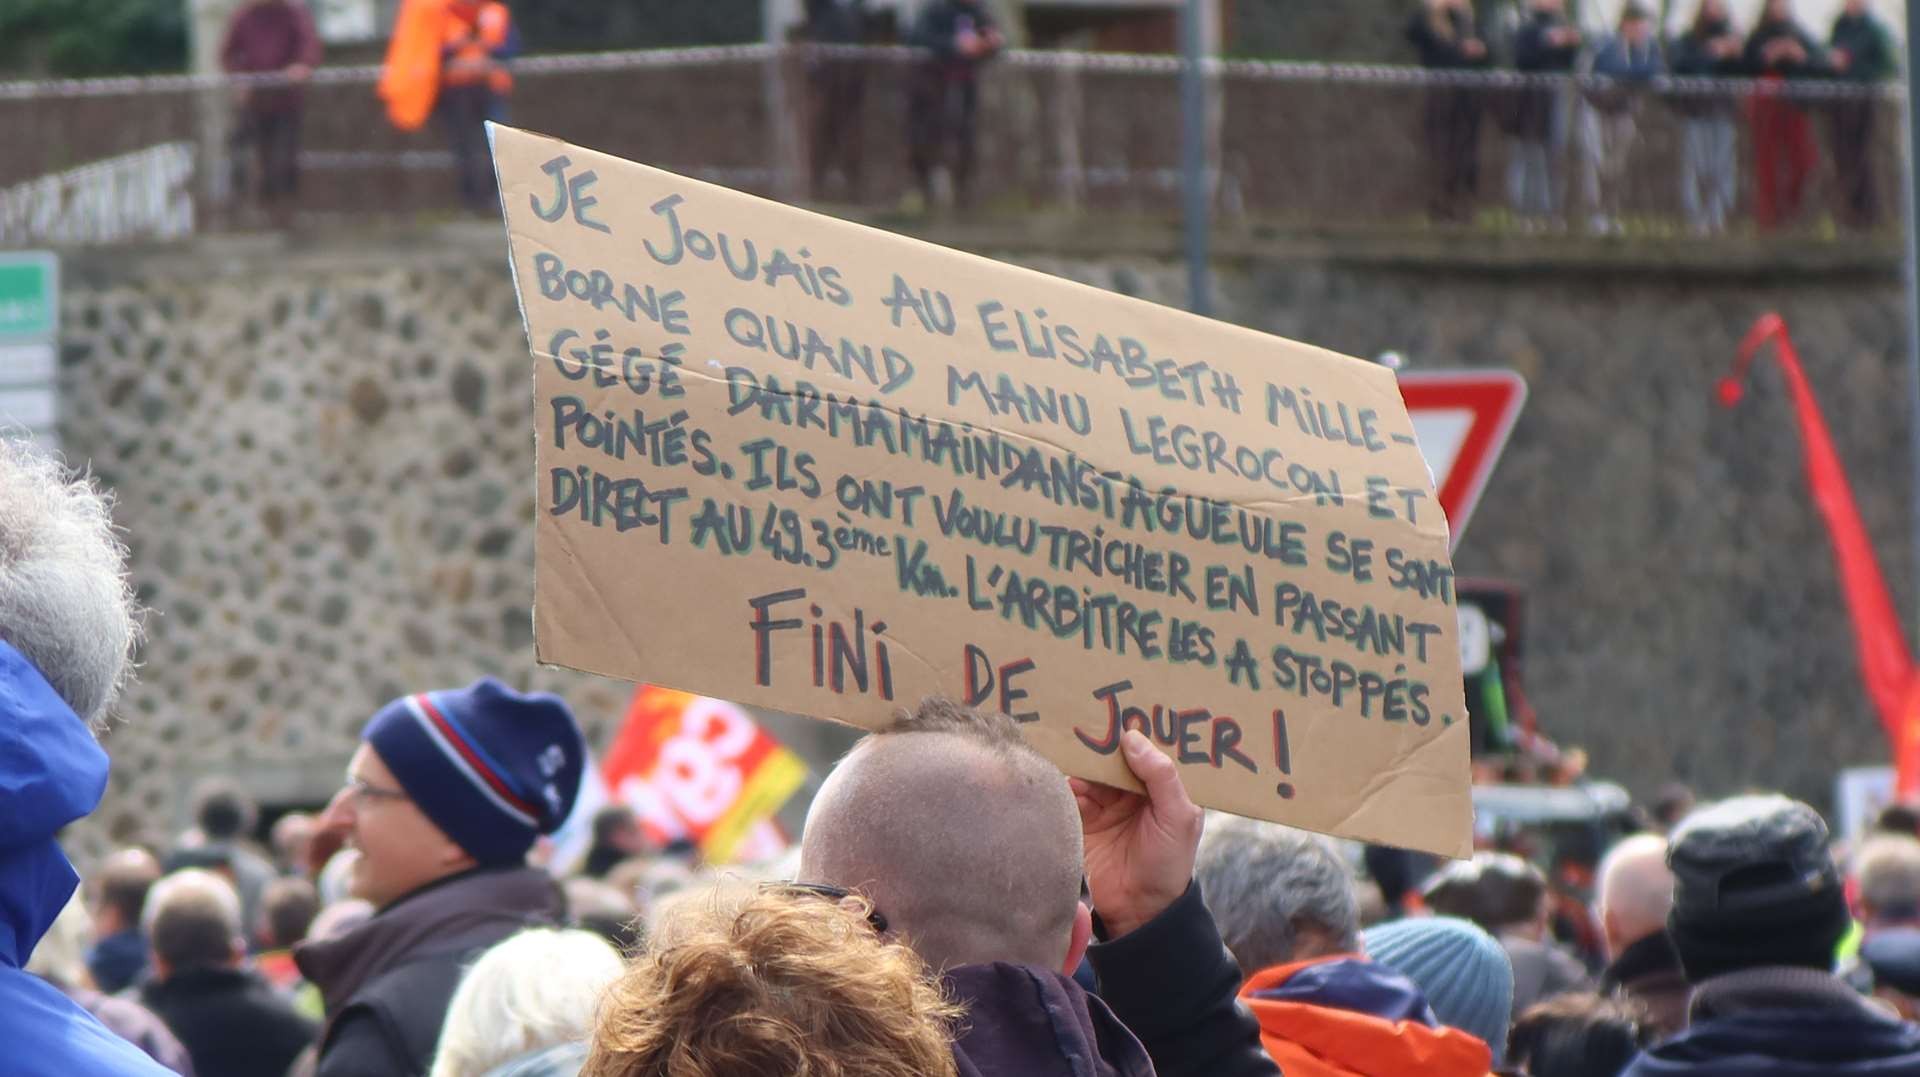 JE JOUAIS AU ELISABETH MILLE-
BORNE QUAND MANU LEGROCON ET
GÉGÉ DARMAMAINDANSTAGUEULE SE SONT
POINTÉS. ILS ONT VOULU TRICHER EN PASSANT
DIRECT AU 49.3ème Km. L'ARBITRE LES A STOPPÉS.
FINI DE JOUER !
CGT